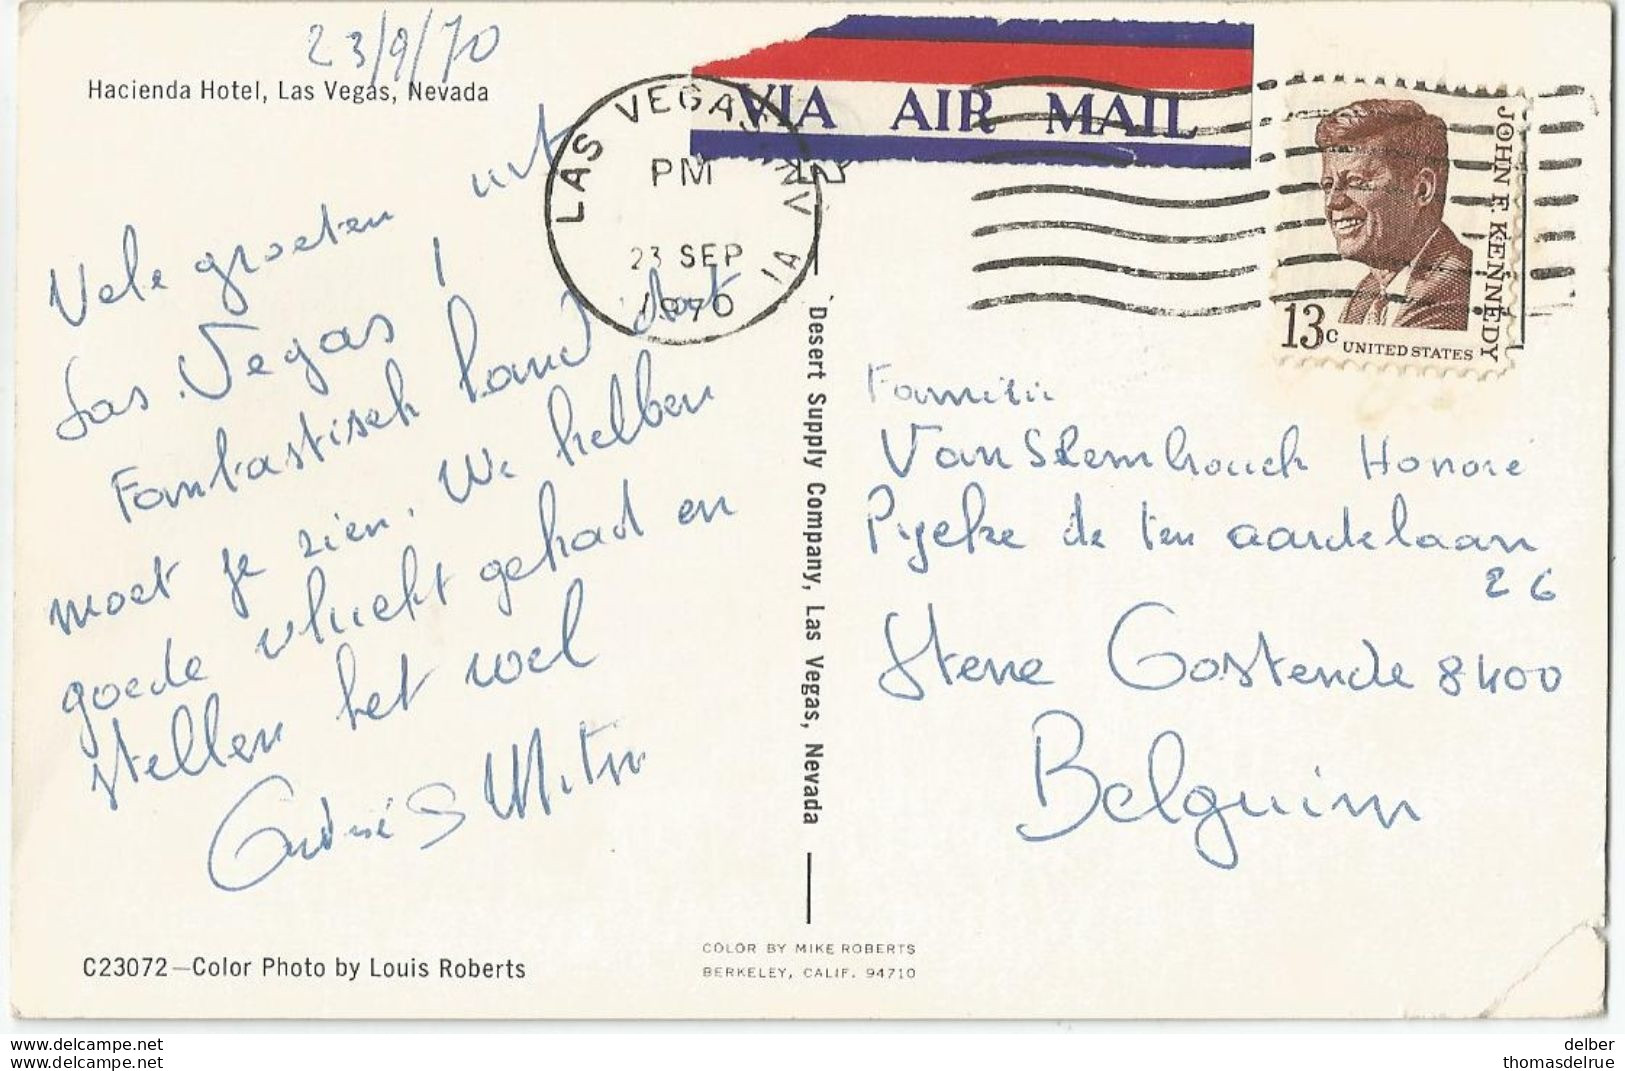 23/9/70
Hacienda Hotel, Las Vegas, Nevada
Vele groeten uit
Las Vegas !
Fantastisch land dat
moet je zien. We hebben
goede vlucht gehad en
stellen het wel
André &
LAS VEGAS, NV
PM
23 SEP
1970
VIA AIR MAIL
JOHN F. KENNEDY
13c UNITED STATES
Desert Supply Company, Las Vegas, Nevada
Familie
Van Honoré
de ten aardelaan
26
Stene Oostende 8400
Belguim
C23072—Color Photo by Louis Roberts
COLOR BY MIKE ROBERTS
BERKELEY, CALIF. 94710
delcampe.net
delcampe.net
delber
thomasdelrue